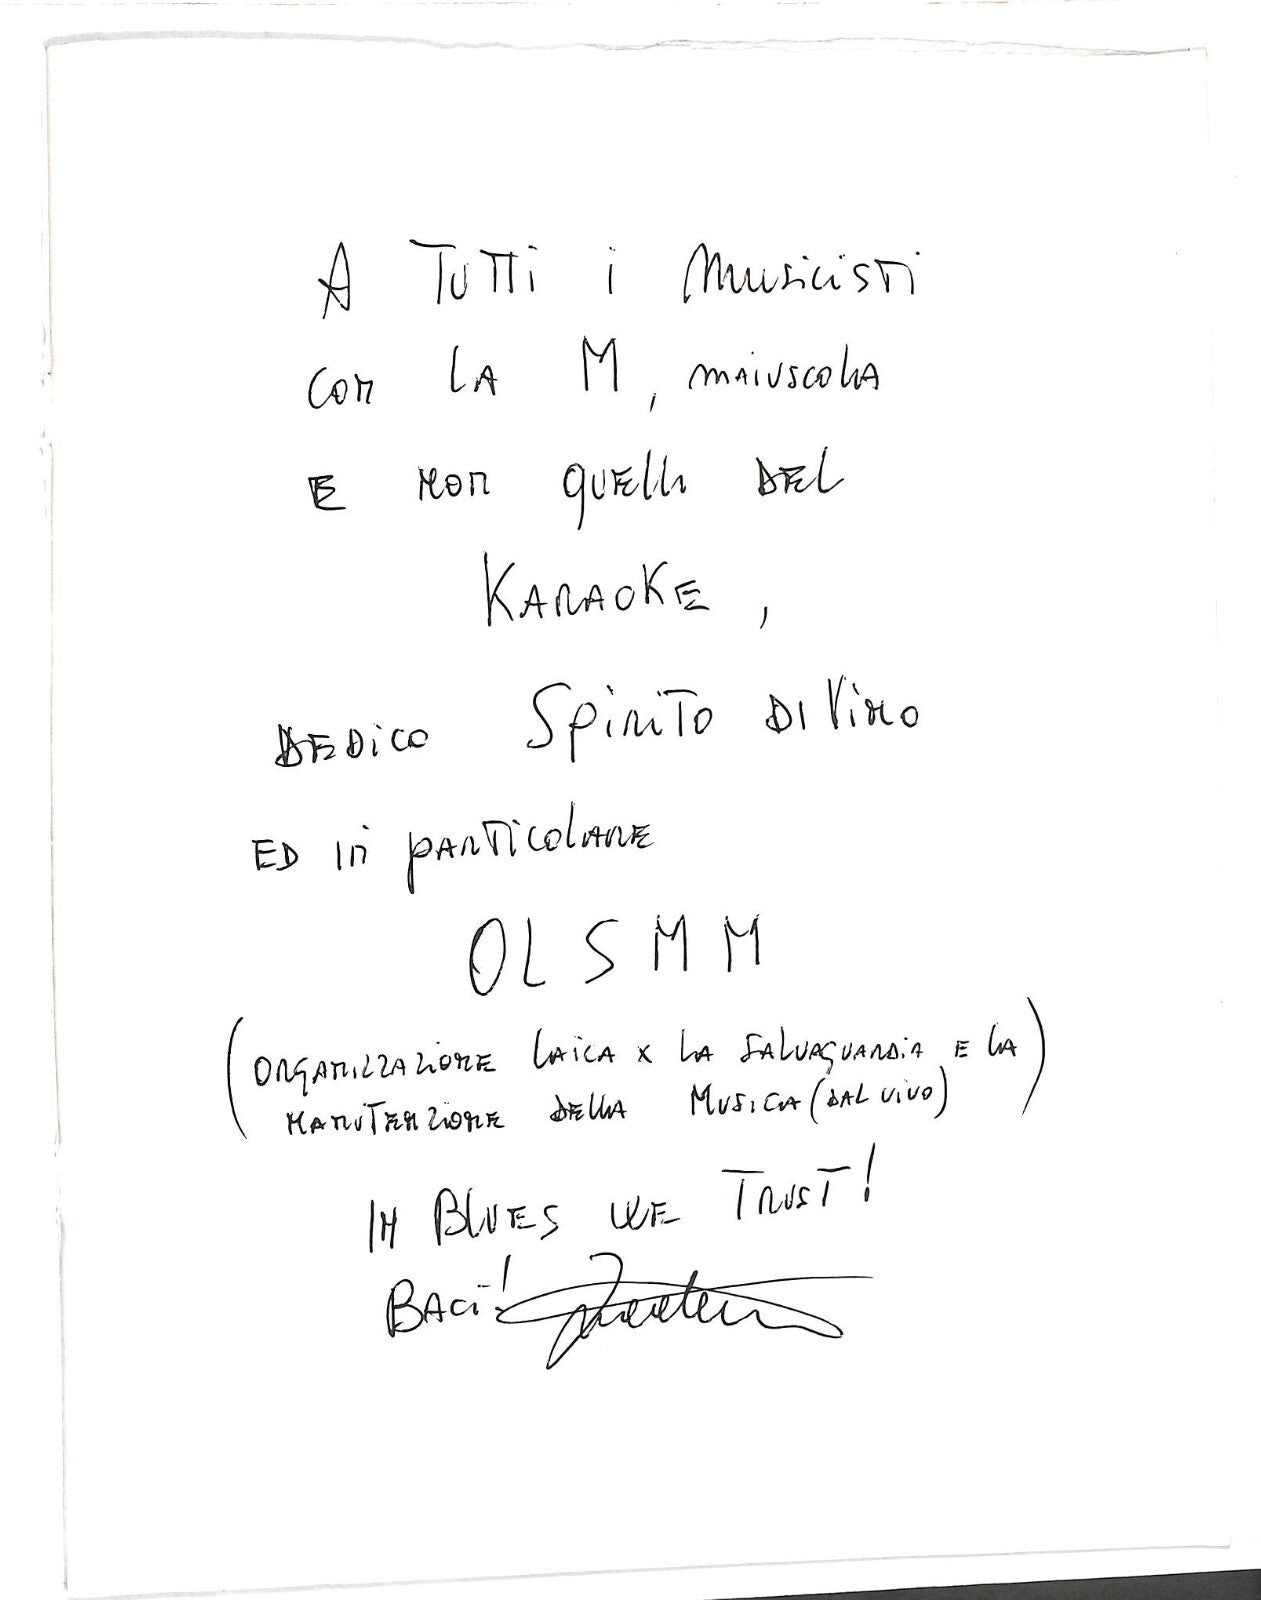 A TUTTI i Musicisti
con LA M, MAIUSCOLA
E NON QUELLI DEL
KARAOKE,
DEDICO SPIRITO DI VINO
ED IN PARTICOLARE
OLSMM
(ORGANIZZAZIONE LAICA X LA SALVAGUARDIA E LA
MANUTENZIONE DELLA MUSICA (DAL VIVO))
IN BLUES WE TRUST!
BACI!